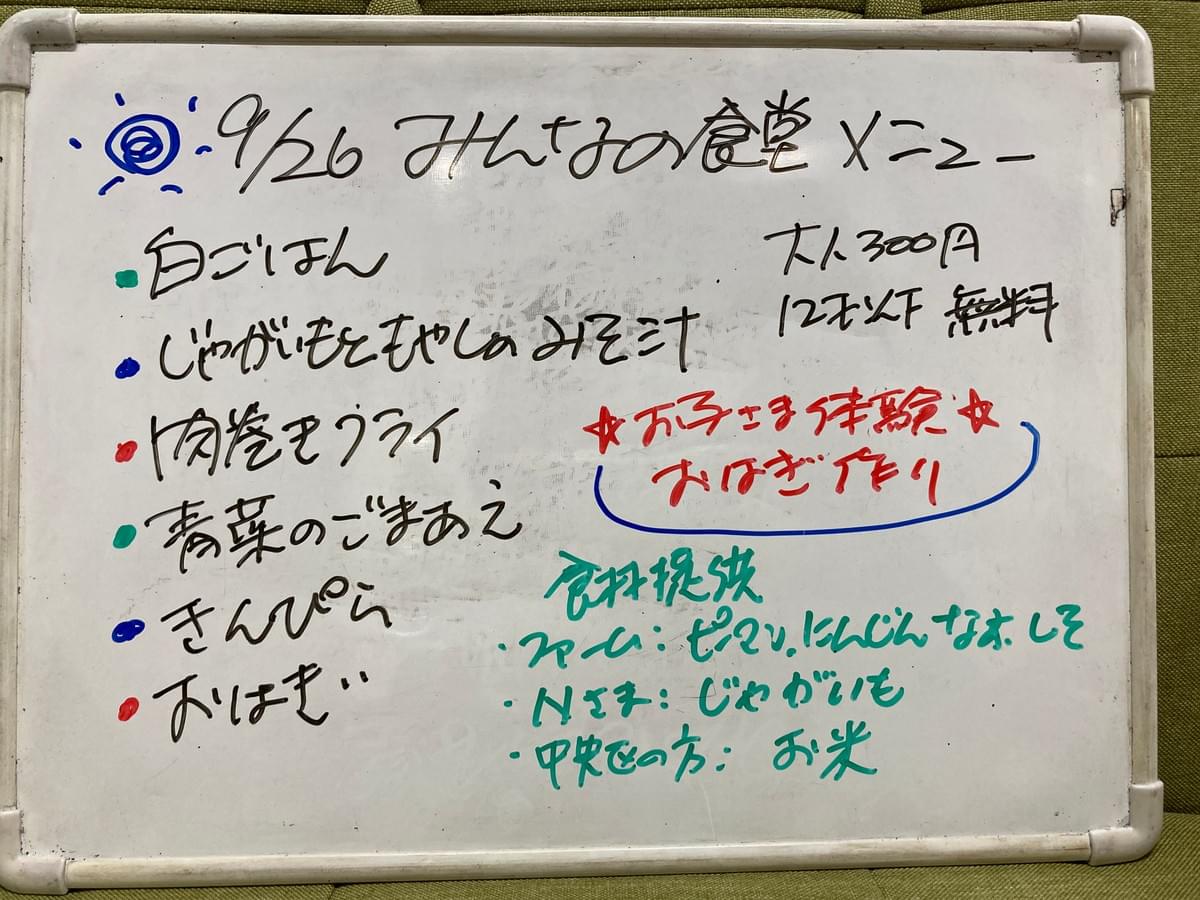 9/26 みんなの食堂 メニュー
・白ごはん
・じゃがいもともやしのみそ汁
・肉巻きフライ
・青菜のごまあえ
・きんぴら
・おはぎ
大人300円
12才以下 無料
☆お子さま体験☆
おはぎ作り
食材提供
・ファーム：ピーマン、にんじん、なす、しそ
・Nさま：じゃがいも
・中央区の方：お米